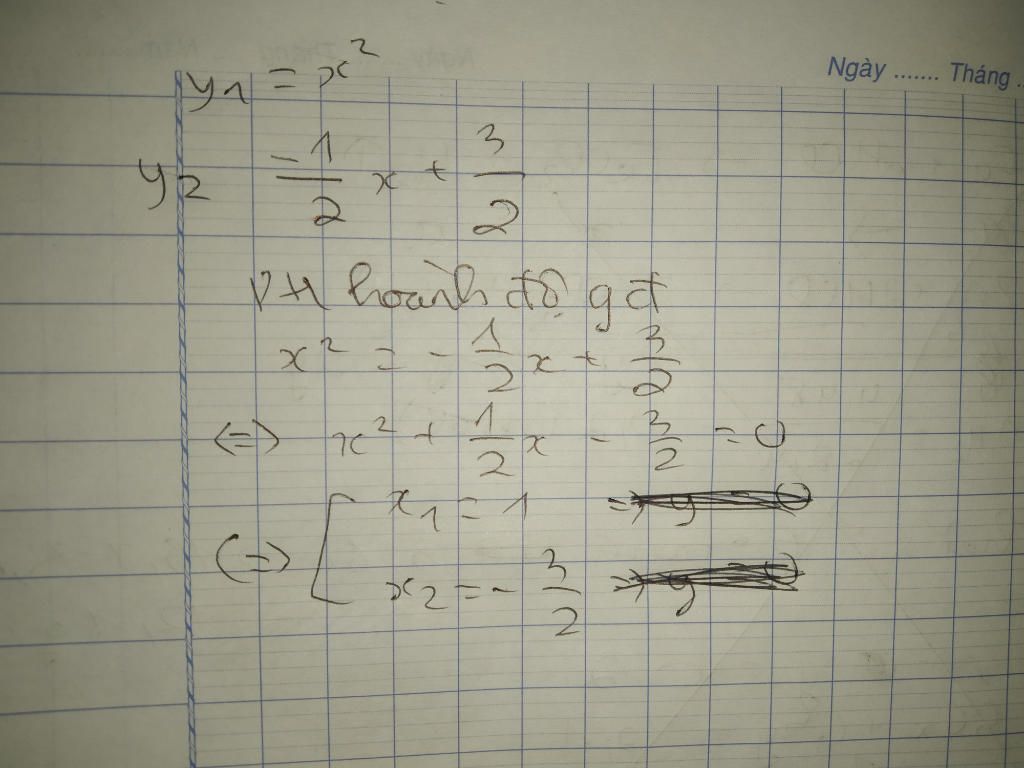 Ngày ....... Tháng ..
y₁ = x²
y₂ = -1/2 x + 3/2
PH hoành độ gđ
x² = -1/2 x + 3/2
(=) x² + 1/2 x - 3/2 = 0
(=) [ x₁ = 1
x₂ = -3/2